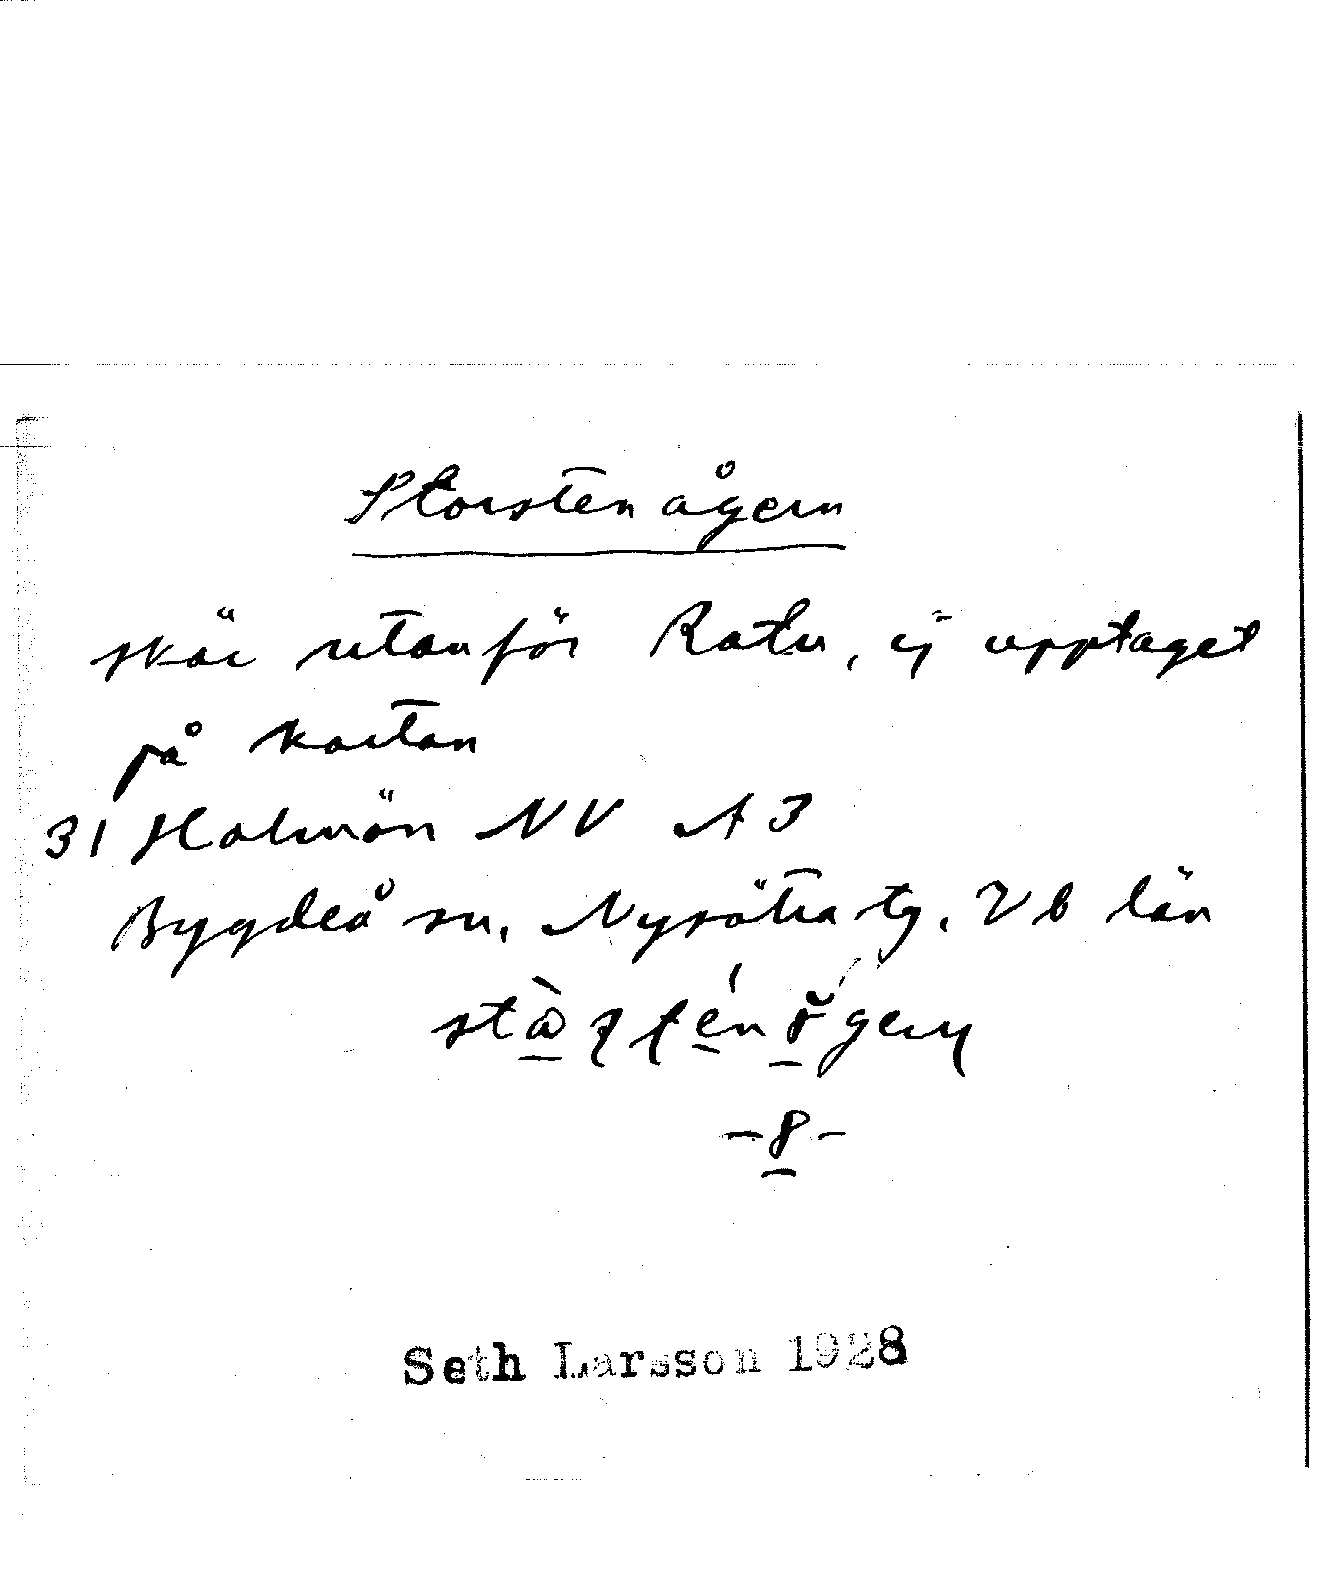 Storstenågern
skär utanför Ratu, ej upptaget
på kartan
31 Holmön NV A3
Bygdeå sn, Nysätra tg. Vb län
Seth Larsson 1928